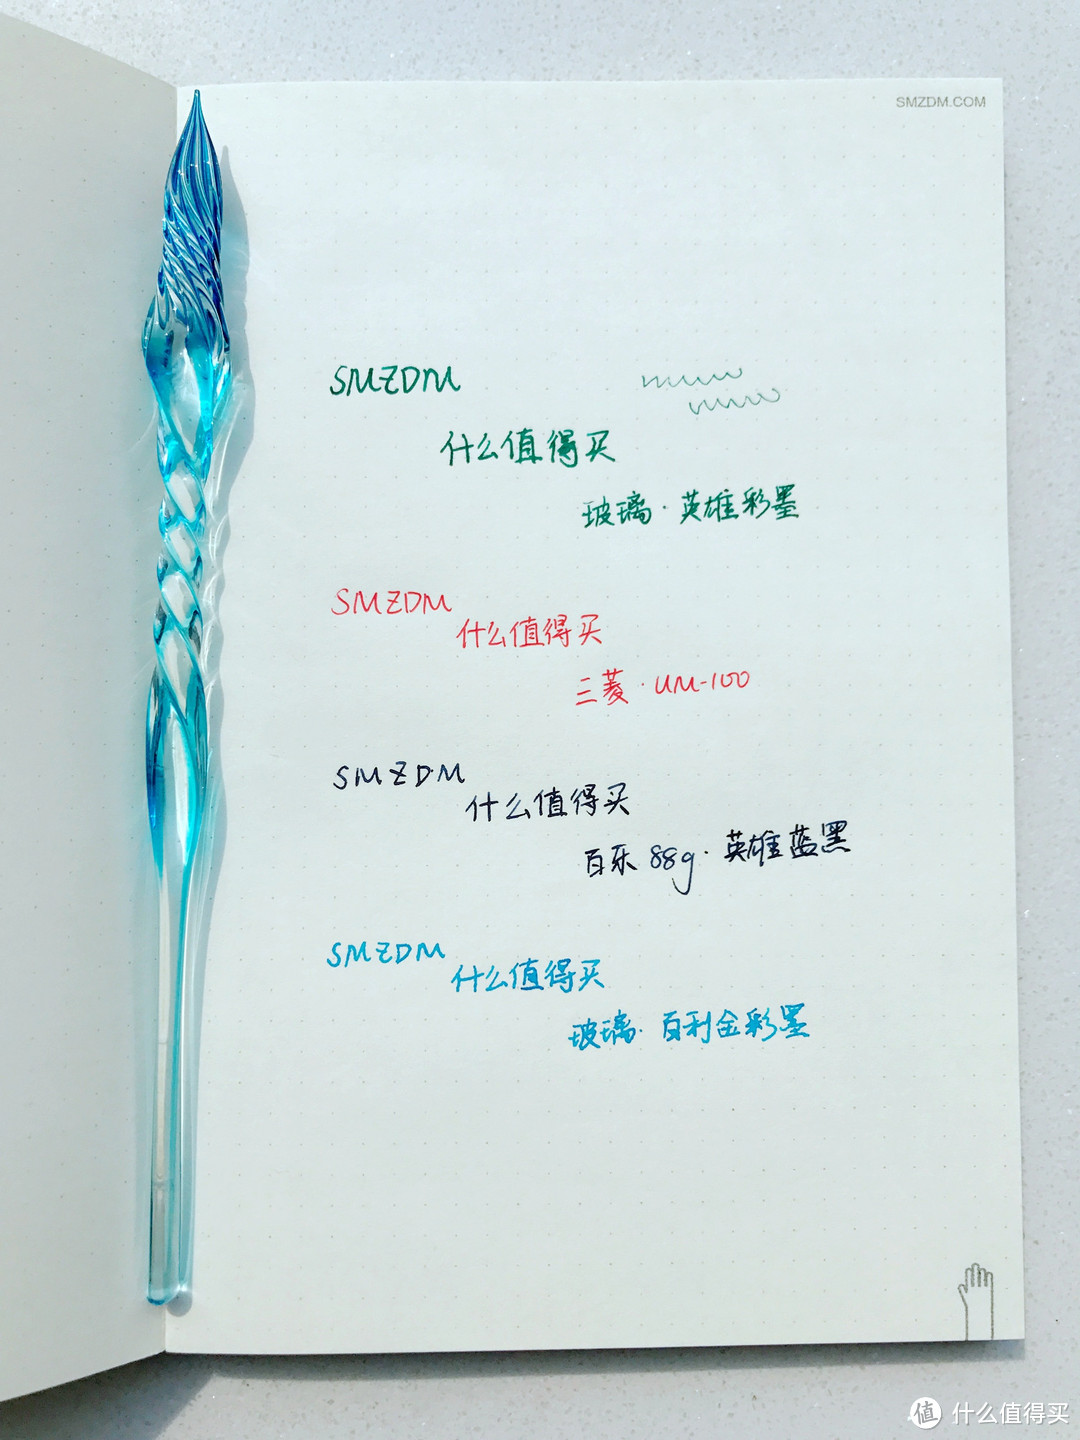 SMZDM.COM
SMZDM
什么值得买
玻璃·英雄彩墨
SMZDM
什么值得买
三菱·UM-100
SMZDM
什么值得买
百乐 88g·英雄蓝黑
SMZDM
什么值得买
玻璃·百利金彩墨
值 什么值得买